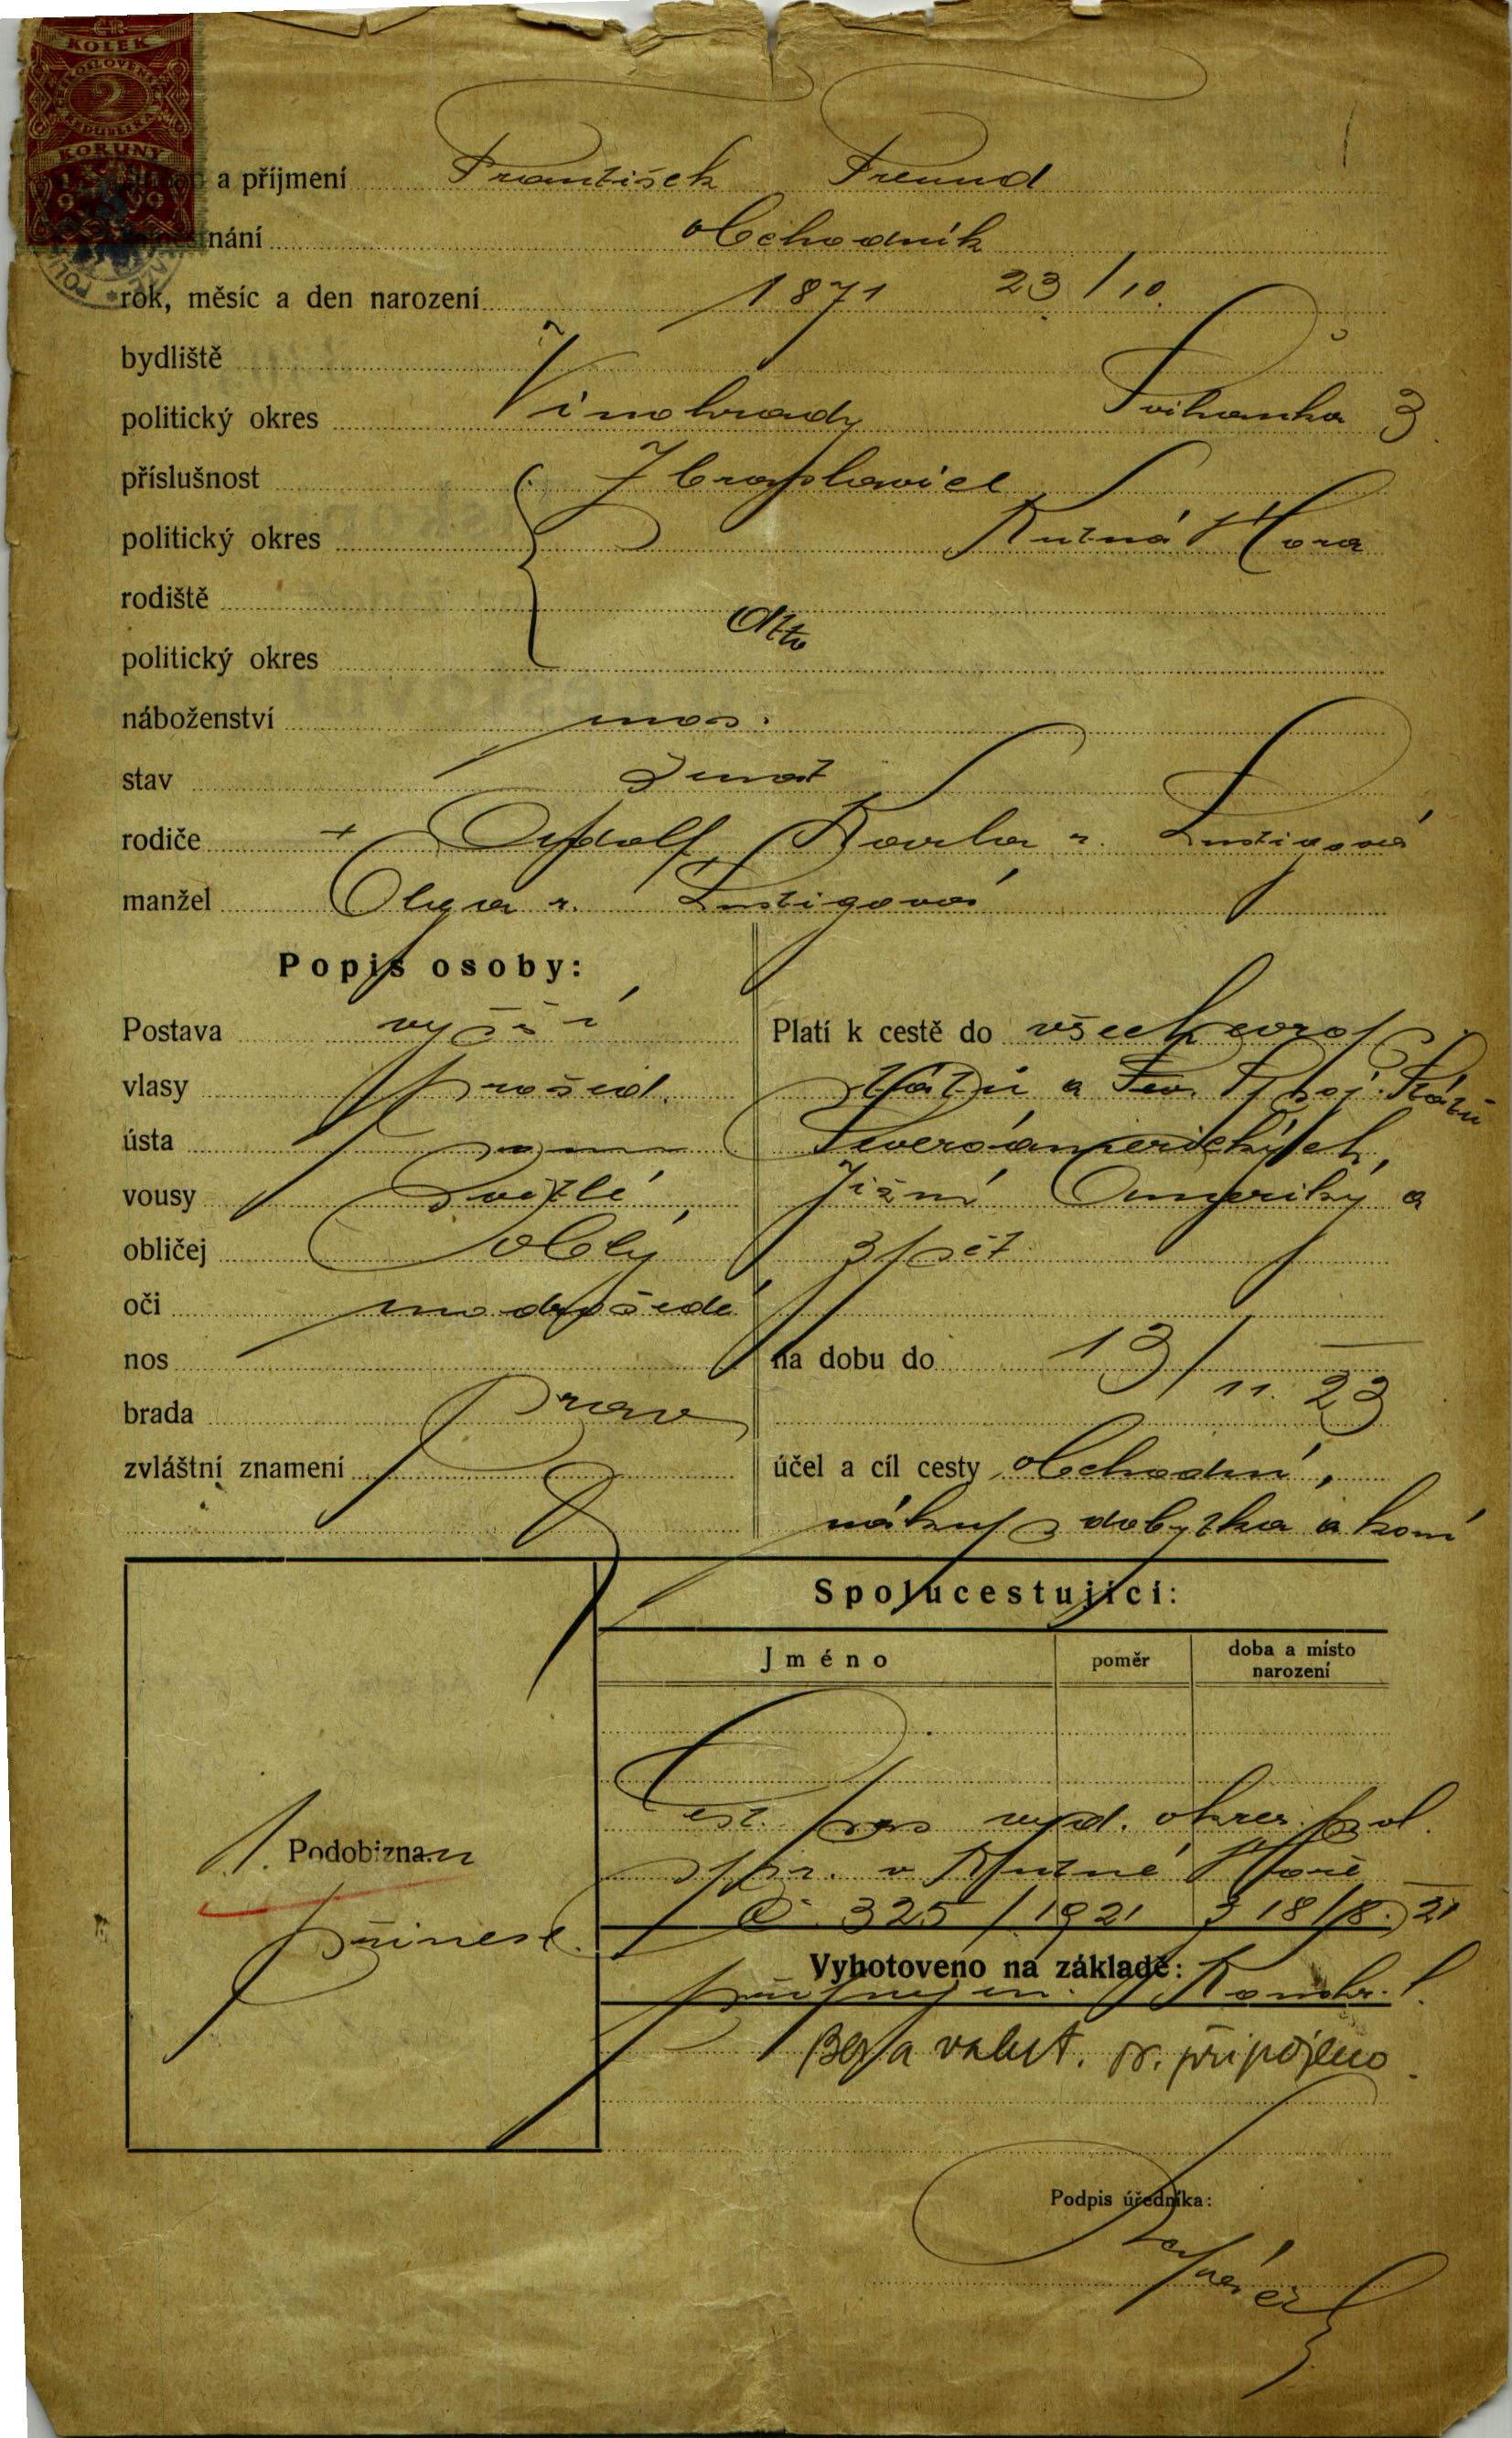 KOLEK
ČESKOSLOVENSKÁ
2
REPUBLIKA
KORUNY
a příjmení František Freund
nání obchodník
rok, měsíc a den narození 1871 23/10.
bydliště
politický okres Vinohrady Švihanka 3
příslušnost Zbraslavice
politický okres Kutná Hora
rodiště
dtto
politický okres
náboženství mos.
stav ženat
rodiče + Rudolf, Karla r. Lustigová
manžel Olga r. Lustigová
Popis osoby:
Postava vyšší
vlasy prošed.
ústa
vousy světlé
obličej oblý
oči modrošedé
nos
brada
zvláštní znamení
Platí k cestě do všech evrop.
států a Sev. Spoj. Států
Severoamerických,
Jižní Ameriky a
zpět
na dobu do 13/11. 23
účel a cíl cesty obchodní,
nákup dobytka a koní
Spolucestující:
Jméno poměr doba a místo narození
Cest. pas vyd. okres. pol.
spr. v Kutné Hoře
č. 325/1921 z 18/8. 21
Podobizna
přinesl
Vyhotoveno na základě:
Bern a valut. pr. připojeno
Podpis úředníka: